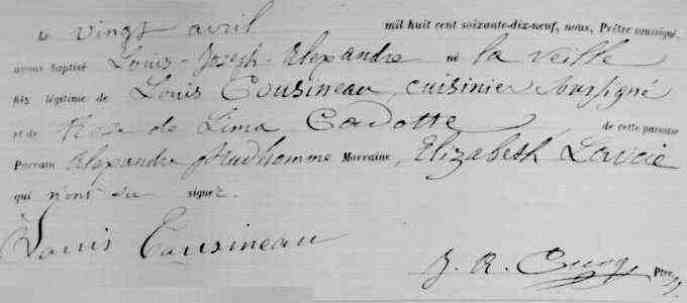 Le vingt avril mil huit cent soixante-dix-neuf, nous, Prêtre soussigné,
avons baptisé Louis-Joseph-Alexandre né la veille
fils légitime de Louis Cousineau, cuisinier soussigné
et de Rose de Lima Cadotte de cette paroisse
Parrain Alexandre Prudhomme Marraine, Elizabeth Lavoie
qui n'ont su signer.
Louis Cousineau
J. R. Ptre